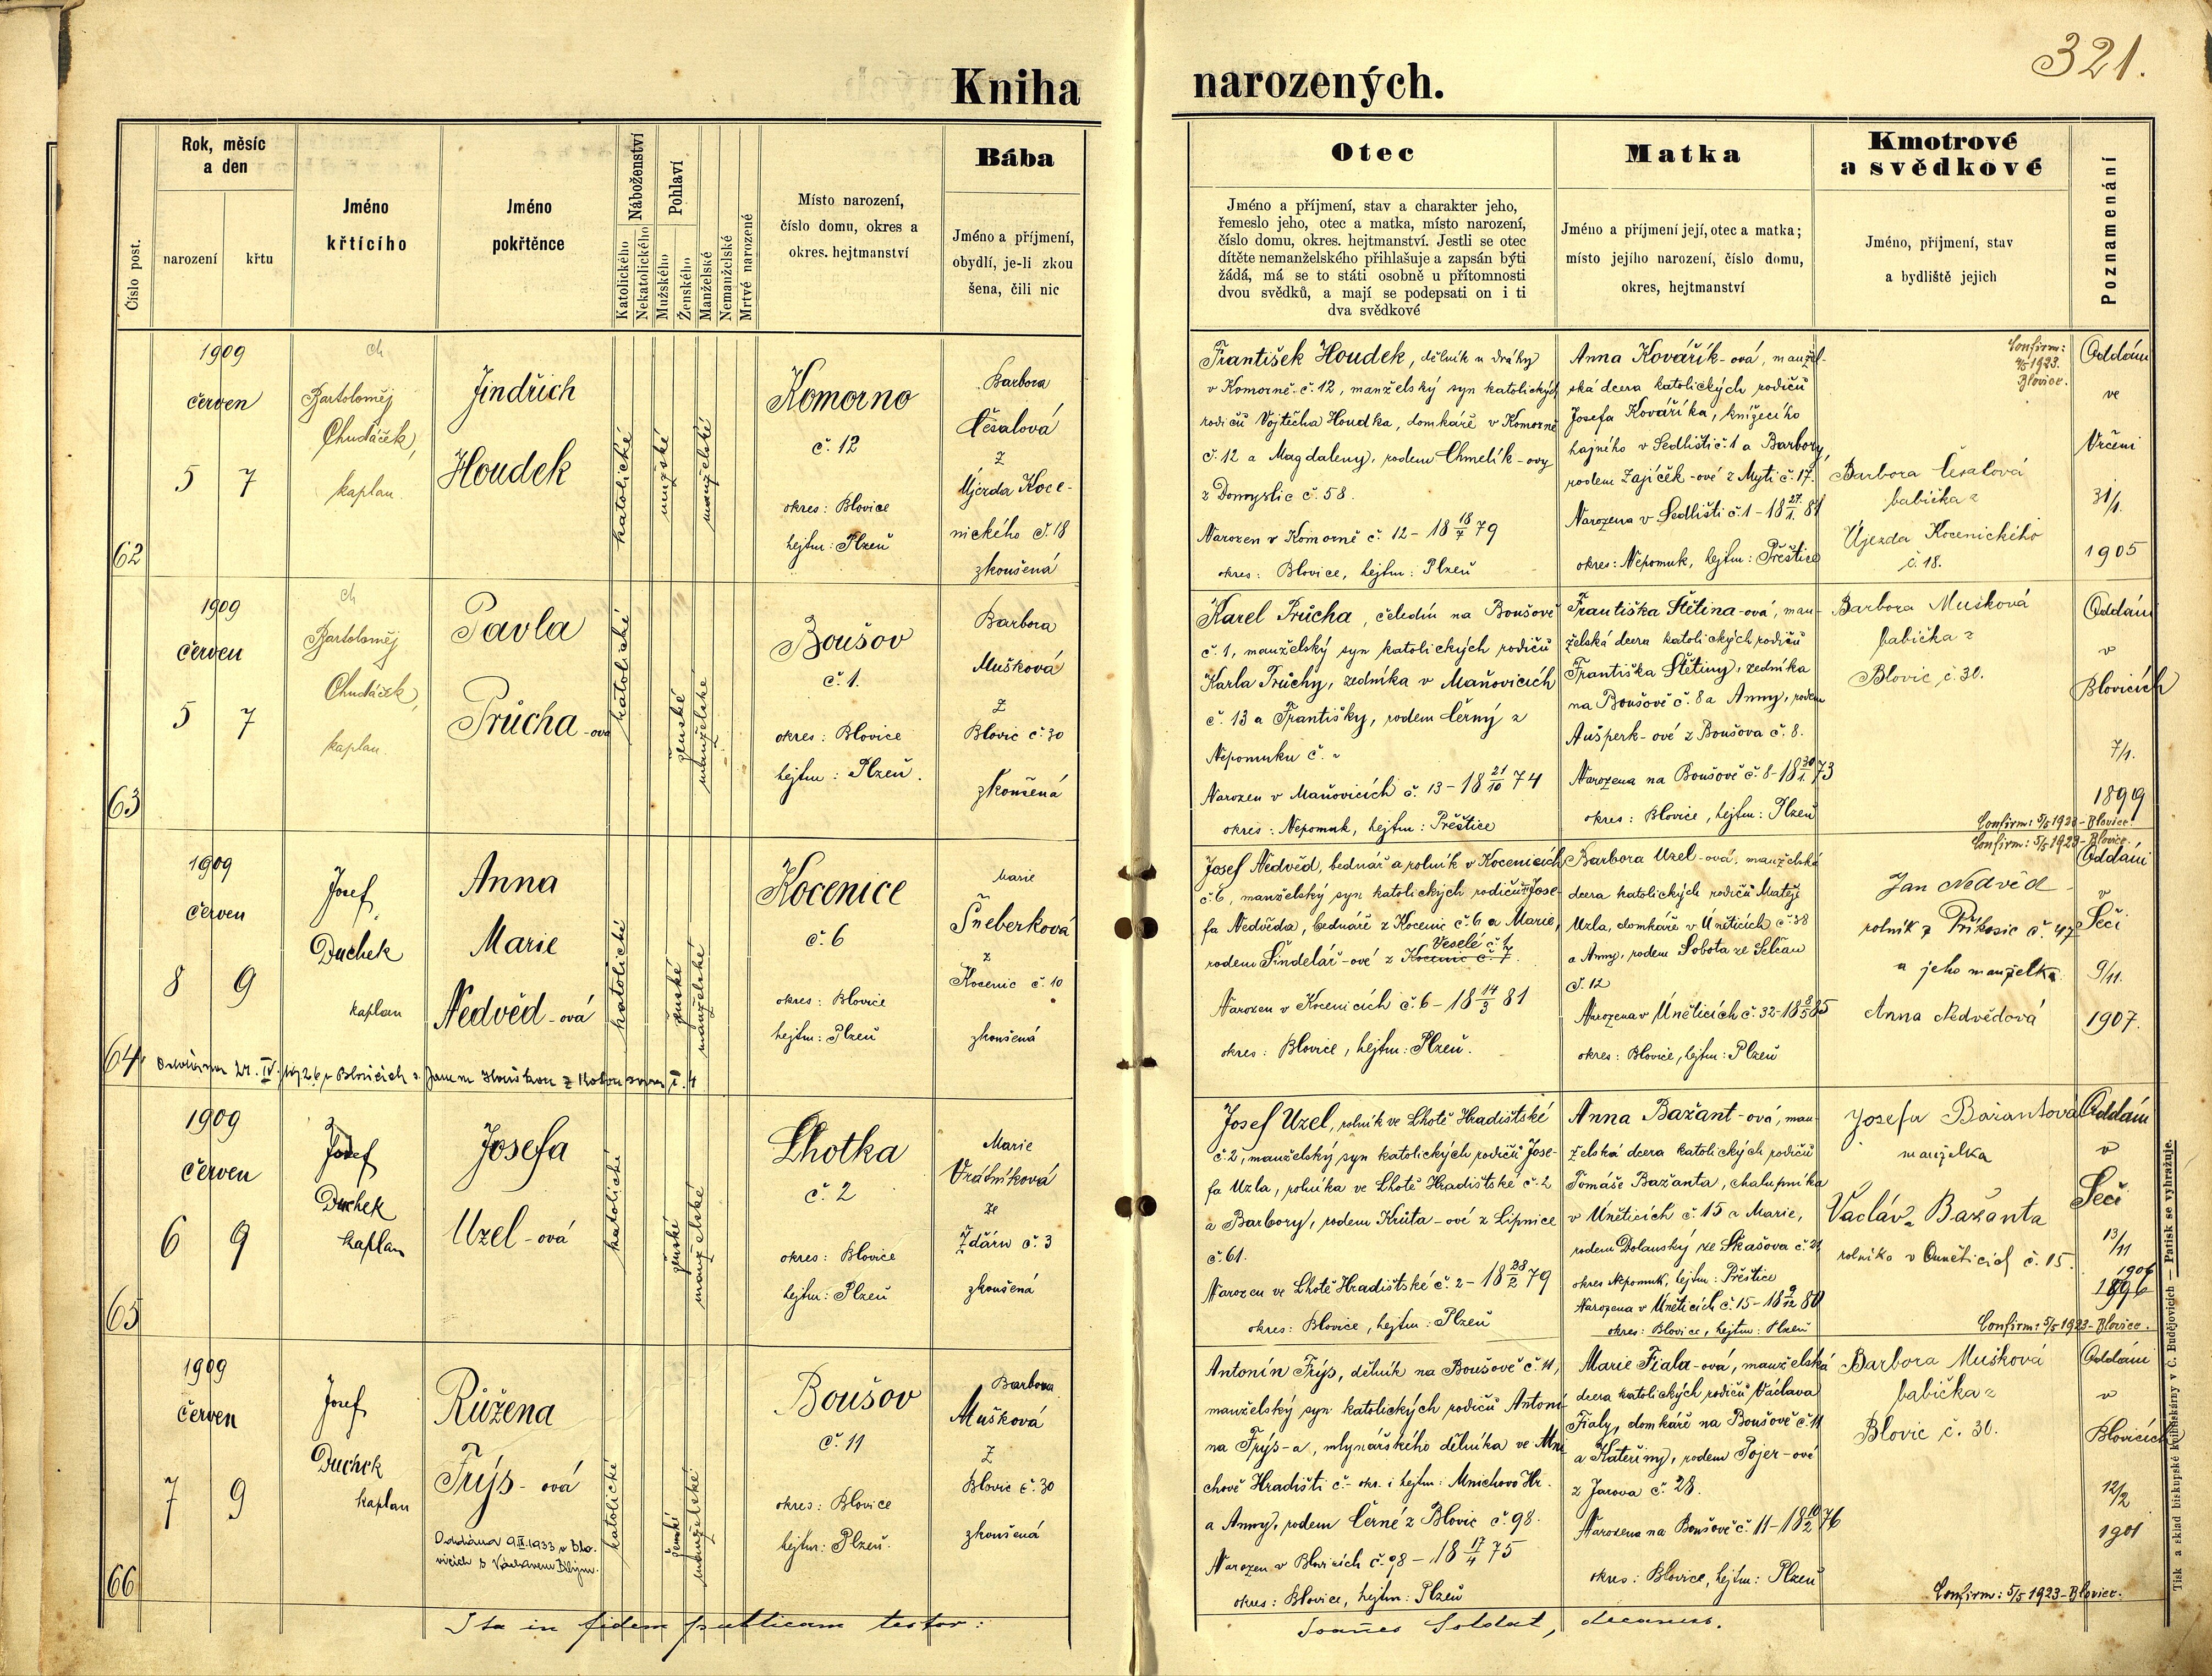 321.
Kniha narozených.
Číslo post.
Rok, měsíc
a den
narození
křtu
Jméno
křtícího
Jméno
pokřtěnce
Náboženství
Katolického
Nekatolického
Pohlaví
Mužského
Ženského
Manželské
Nemanželské
Mrtvě narozené
Místo narození,
číslo domu, okres a
okres. hejtmanství
Bába
Jméno a příjmení,
obydlí, je-li zkou
šena, čili nic
Otec
Jméno a příjmení, stav a charakter jeho,
řemeslo jeho, otec a matka, místo narození,
číslo domu, okres. hejtmanství. Jestli se otec
dítěte nemanželského přihlašuje a zapsán býti
žádá, má se to státi osobně u přítomnosti
dvou svědků, a mají se podepsati on i ti
dva svědkové
Matka
Jméno a příjmení její, otec a matka;
místo jejího narození, číslo domu,
okres, hejtmanství
Kmotrové
a svědkové
Jméno, příjmení, stav
a bydliště jejich
Poznamenání
62
1909
červen
5 7
Bartoloměj
Chudáček,
kaplan.
Jindřich
Houdek
katolické
mužské
manželské
Komorno
č. 12
okres: Blovice
hejtm: Plzeň
Barbora
Česalová
z
Újezda Koce-
nického č. 18
zkoušená
František Houdek, dělník u dráhy
v Komorně č. 12, manželský syn katolických
rodičů Vojtěcha Houdka, domkáře v Komorně
č. 12 a Magdaleny, rodem Chmelík-ovy
z Domyslic č. 58.
Narozen v Komorně č. 12 - 18 18/7 79
okres: Blovice, hejtm: Plzeň
Anna Kovářík-ová, manžel-
ská dcera katolických rodičů
Josefa Kováříka, knížecího
hajného v Sedlišti č. 1 a Barbory,
rodem Zajíček-ové z Mýti č. 17.
Narozena v Sedlišti č. 1 - 18 27/1. 81
okres: Nepomuk, hejtm: Přeštice
Confirm:
1923.
Blovice.
Barbora Česalová
babička z
Újezda Kocenického
č. 18.
Oddáni
ve
Vrčeni
31/1.
1905
63
1909
červen
5 7
Bartoloměj
Chudáček,
kaplan.
Pavla
Průcha-ová
katolické
ženské
manželské
Boušov
č. 1.
okres: Blovice
hejtm: Plzeň.
Barbora
Mušková
z
Blovic č. 30
zkoušená
Karel Průcha, čeledín na Boušově
č. 1, manželský syn katolických rodičů
Karla Průchy, zedníka v Maňovicích
č. 13 a Františky, rodem Černý z
Nepomuku č. -
Narozen v Maňovicích č. 13 - 18 21/10 74
okres: Nepomuk, hejtm: Přeštice
Františka Štětina-ová, man-
želská dcera katolických rodičů
Františka Štětiny, zedníka
na Boušově č. 8 a Anny, rodem
Aušperk-ové z Boušova č. 8.
Narozena na Boušově č. 8 - 18 30/1. 73
okres: Blovice, hejtm: Plzeň
Barbora Mušková
babička z
Blovic č. 30.
Oddáni
v
Blovicích
7/1.
1899
Confirm: 5/5 1923 - Blovice.
64
1909
červen
8 9
Josef
Duchek
kaplan
Anna
Marie
Nedvěd-ová
katolické
ženské
manželské
Kocenice
č. 6
okres: Blovice
hejtm: Plzeň
Marie
Šneberková
z
Kocenic č. 10
zkoušená
Josef Nedvěd, bednář a rolník v Kocenicích
č. 6, manželský syn katolických rodičů Jose-
fa Nedvěda, bednáře z Kocenic č. 6 a Marie,
Veselé č. 1
rodem Šindelář-ové z Kocenic č. 7.
Narozen v Kocenicích č. 6 - 18 14/3 81
okres: Blovice, hejtm: Plzeň.
Barbora Uzel-ová, manželská
dcera katolických rodičů Matěje
Uzla, domkáře v Úněticích č. 38
a Anny, rodem Sobota ze Selčan
č. 12
Narozena v Úněticích č. 32 - 18 85
okres: Blovice, hejtm: Plzeň
Confirm: 5/5 1923 - Blovice
Jan Nedvěd
rolník z Příkosic č. 47
a jeho manželka
Anna Nedvědová
Oddáni
v
Seči
9/11.
1907.
v Blovicích s Janem
65
1909
červen
6 9
Josef
Duchek
kaplan
Josefa
Uzel-ová
katolické
ženské
manželské
Lhotka
č. 2
okres: Blovice
hejtm: Plzeň
Marie
Vrátníková
ze
Ždáru č. 3
zkoušená
Josef Uzel, rolník ve Lhotě Hradištské
č. 2, manželský syn katolických rodičů Jose-
fa Uzla, rolníka ve Lhotě Hradištské č. 2
a Barbory, rodem Krůta-ové z Lipnice
č. 61.
Narozen ve Lhotě Hradištské č. 2 - 18 23/2 79
okres: Blovice, hejtm: Plzeň
Anna Bažant-ová, man-
želská dcera katolických rodičů
Tomáše Bažanta, chalupníka
v Úněticích č. 15 a Marie,
rodem Dolanský ze Skašova č. 21
okres Nepomuk, hejtm: Přeštice
Narozena v Úněticích č. 15 - 18 9/12 80
okres: Blovice, hejtm: Plzeň
Josefa Bažantová
manželka
Václava Bažanta
rolníka v Ouněticích č. 15.
Oddáni
v
Seči
13/11
1906
Confirm: 5/5 1923 - Blovice.
66
1909
červen
7 9
Josef
Duchek
kaplan
Růžena
Frýs-ová
Oddána 9. 1933 v Blo-
vicích s Václavem
katolické
ženské
manželské
Boušov
č. 11
okres: Blovice
hejtm: Plzeň.
Barbora
Mušková
z
Blovic č. 30
zkoušená
Antonín Frýs, dělník na Boušově č. 11,
manželský syn katolických rodičů Antoní-
na Frýs-a, mlynářského dělníka ve Mni-
chově Hradišti č. - okr. i hejtm: Mnichovo Hr.
a Anny, rodem Černé z Blovic č. 98.
Narozen v Blovicích č. 98 - 18 17/4 75
okres: Blovice, hejtm: Plzeň
Marie Fiala-ová, manželská
dcera katolických rodičů Václava
Fialy, domkáře na Boušově č. 11
a Kateřiny, rodem Pojer-ové
z Jarova č. 28.
Narozena na Boušově č. 11 - 18 10/2 76
okres: Blovice, hejtm: Plzeň
Barbora Mušková
babička z
Blovic č. 30.
Oddáni
v
Blovicích
12/2
1901
Confirm: 5/5 1923 - Blovice.
Ita in fidem publicam testor:
Joañes Soldat, decanus.
Tisk a sklad biskupské knihtiskárny v Č. Budějovicích — Patisk se vyhražuje.